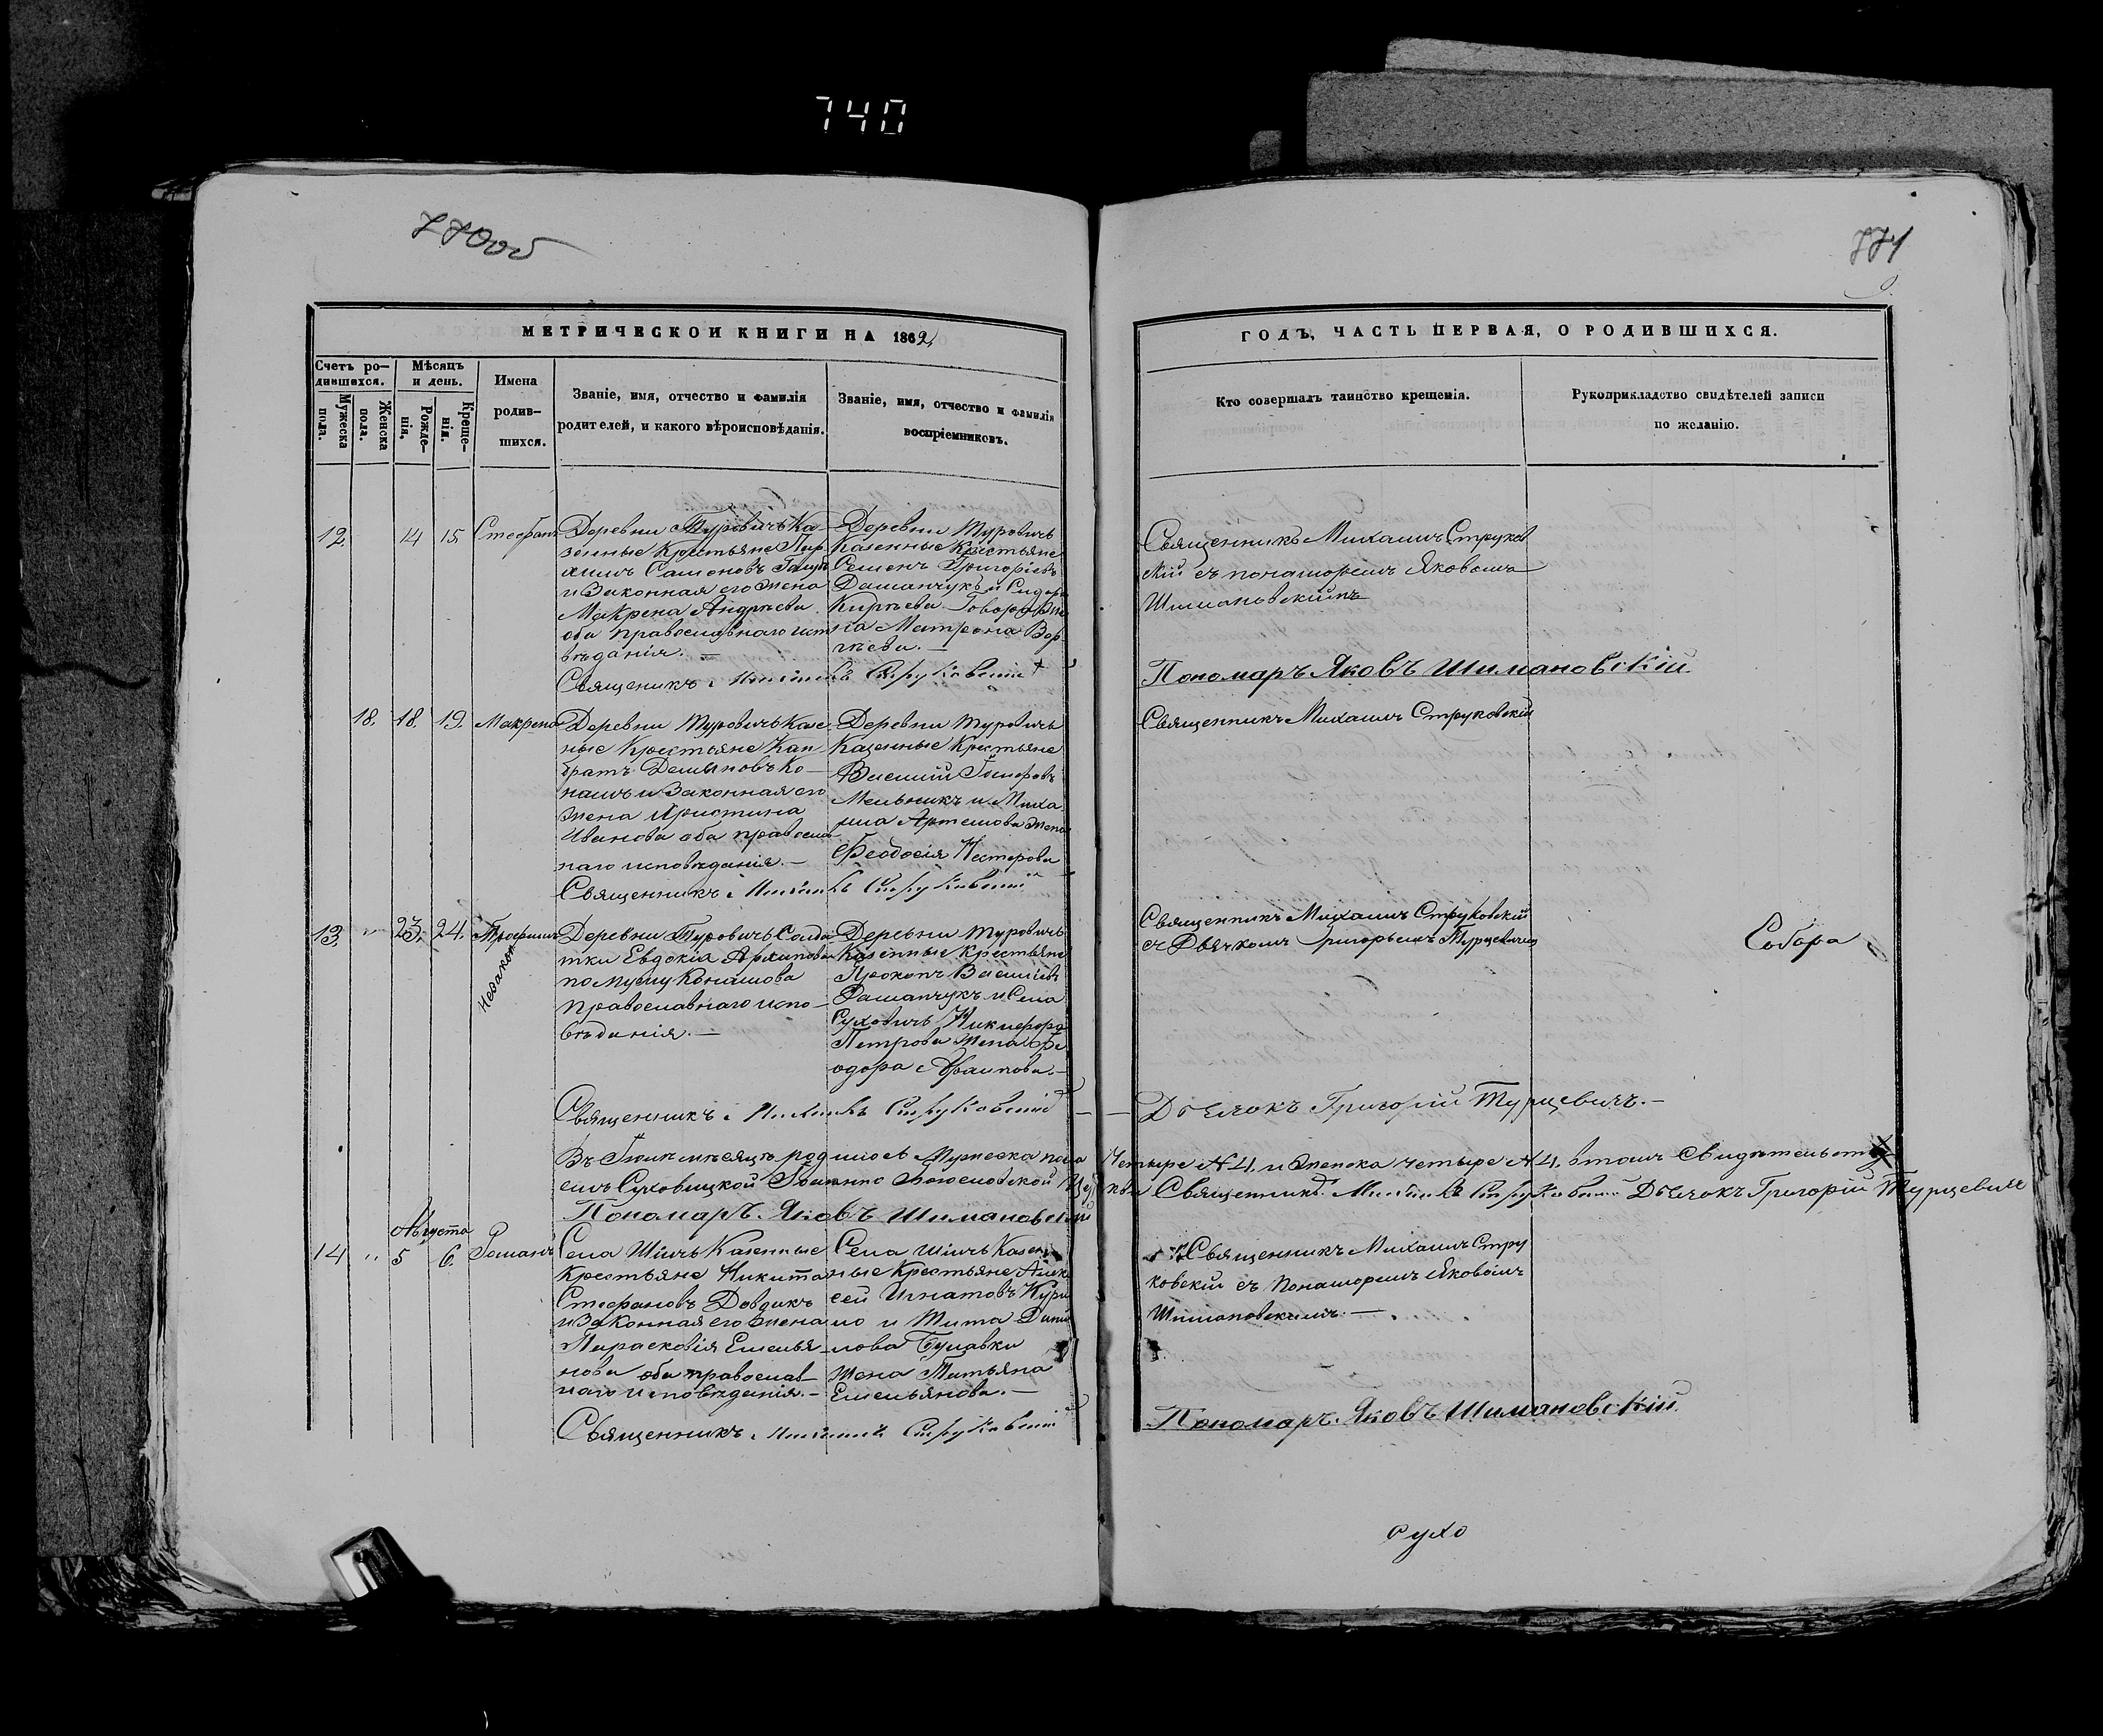 740
770об
771
МЕТРИЧЕСКОЙ КНИГИ НА 1862
ГОДЪ, ЧАСТЬ ПЕРВАЯ, О РОДИВШИХСЯ.
Счетъ ро-
дившихся.
Мужеска
пола.
Женска
пола.
Мѣсяцъ
и день.
Рожде-
нія.
Креще-
нія.
Имена
родив-
шихся.
Званіе, имя, отчество и фамилія
родителей, и какого вѣроисповѣданія.
Званіе, имя, отчество и фамилія
воспріемниковъ.
Кто совершалъ таинство крещенія.
Рукоприкладство свидѣтелей записи
по желанію.
12. 14 15. Стефанъ
Деревни Туровичъ Ка-
зенные Крестьяне
Семеновъ
и Законная его жена
Макрена Андреева
оба православнаго испо
вѣданія. —
Деревни Туровичъ
Казенные Крестьяне
Семенъ Григоріевъ
Дашанчукъ и Сидора
Кирѣева Говора же
на Матрона
Священникъ Михаилъ Струковскій
Священникъ Михаилъ Струков
скій съ пономаремъ Яковомъ
Шимановскимъ
Пономаръ Яковъ Шимановскій.
18. 18. 19. Макрена
Деревни Туровичъ Казе
ные Крестьяне Кан-
дратъ Демьяновъ Ко-
нашъ и Законная его
жена Христина
Иванова оба православ
наго исповѣданія. —
Деревни Туровичъ
Казенные Крестьяне
Василій
Мельникъ и Миха
ила Артемова жена
Феодосія Нестерова
Священникъ Михаилъ Струковскій
Священникъ Михаилъ Струковскій
13. " 23. 24. Трофимъ
Незакон
Деревни Туровичъ Солда
тки Евдокія Архипова
по мужу Конашова
православнаго испо-
вѣданія. —
Деревни Туровичъ
Казенные Крестьяне
Прокопъ Василіевъ
Дашанчукъ и Села
Суховичъ Никифора
Петрова жена Фе
одора
Священникъ Михаилъ Струковскій
Священникъ Михаилъ Струковскій
съ Дьячкомъ Григорьемъ Турцевичемъ
Собора
Дьячокъ Григорій Турцевичъ. —
Въ Іюлѣ мѣсяцѣ родилось Мужеска пола Четыре №4. и Женска четыре №4. втомъ Свидѣтельству
емъ Суховицкой Іоанно Богословской Церкви Священникъ Михаилъ Струковскій Дьячокъ Григорій Турцевичъ
Пономаръ Яковъ Шимановскій
Августа
14 " 5 6. Романъ
Села Шичъ Казенные
Крестьяне Никита
Стефановъ Довдикъ
и Законная его жена
Параскевія Емелья
нова оба православ
наго исповѣданія. —
Села Шичъ Казен
ные Крестьяне Алек
сей Игнатовъ Кури
ло и Тита Дани
лова Булавки
жена Татьяна
Емельянова. —
Священникъ Михаилъ Струковскій
Священникъ Михаилъ Стру
ковскій съ Пономаремъ Яковомъ
Шимановскимъ. —
Пономаръ Яковъ Шимановскій.
сухо